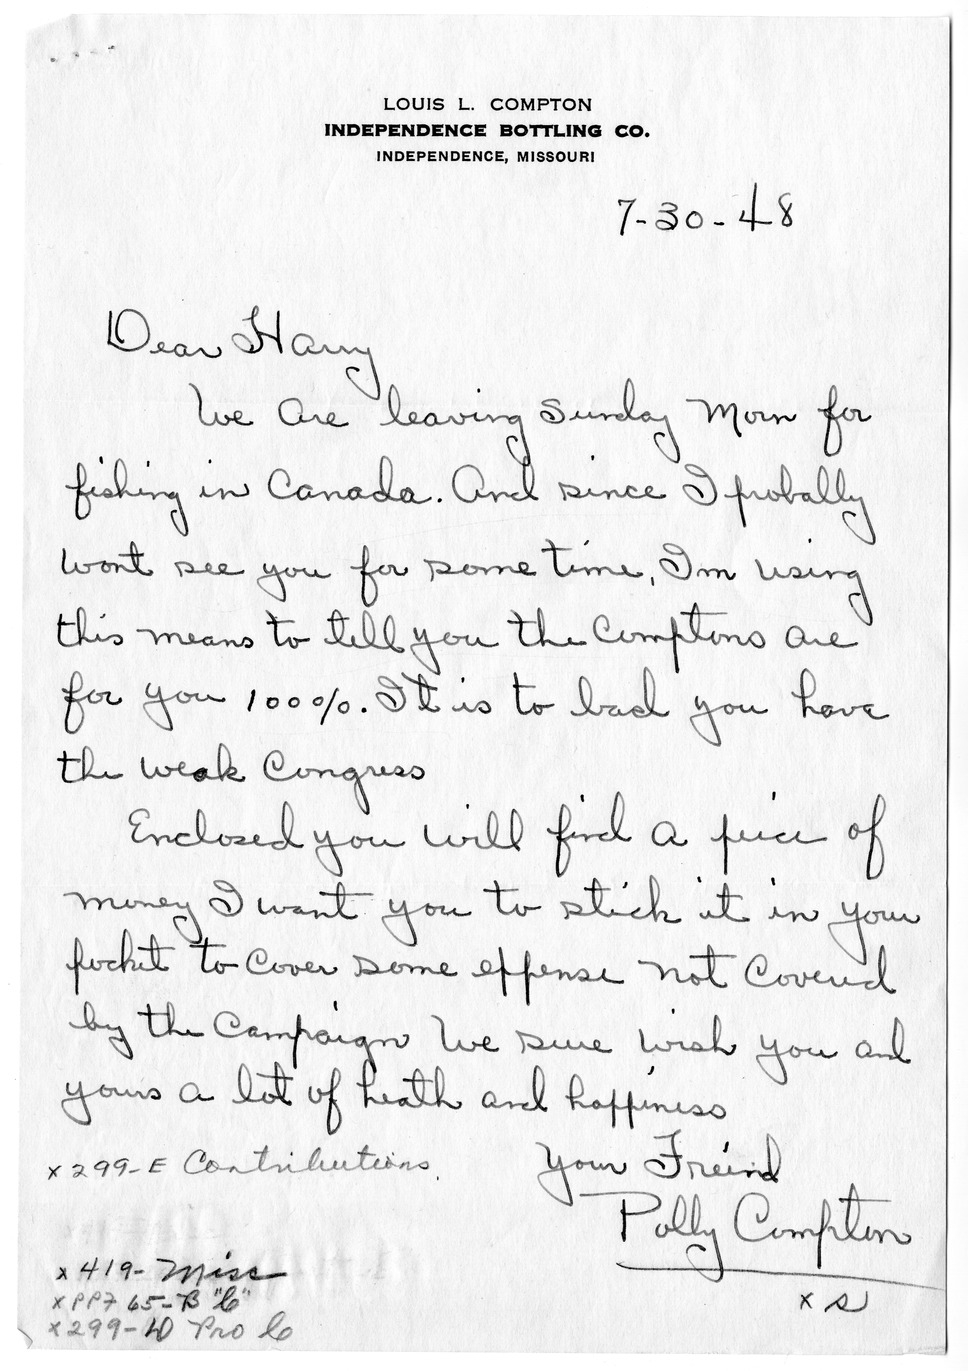 LOUIS L. COMPTON
INDEPENDENCE BOTTLING CO.
INDEPENDENCE, MISSOURI
7-30-48
Dear Harry
We are leaving Sunday Morn for
fishing in Canada. And since I probally
wont see you for some time, Im using
this means to tell you the Comptons are
for you 100%. It is to bad you have
the weak Congress
Enclosed you will find a peice of
money I want you to stick it in your
pocket to cover some effense not covered
by the Campaign We sure wish you and
yours a lot of heath and happiness
Your Freind
Polly Compton
x 299-E Contributions.
x 419- Misc
x PPF 65-B "C"
x 299-D Pro C
x S